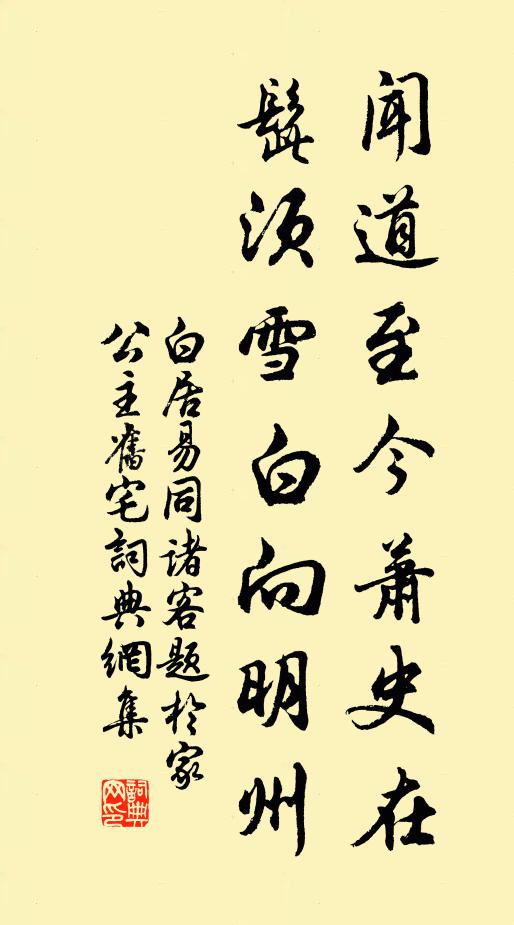 闻道至今萧史在
髭须雪白向明州
白居易同诸客题於家
公主旧宅詞典網集
詞典
网印